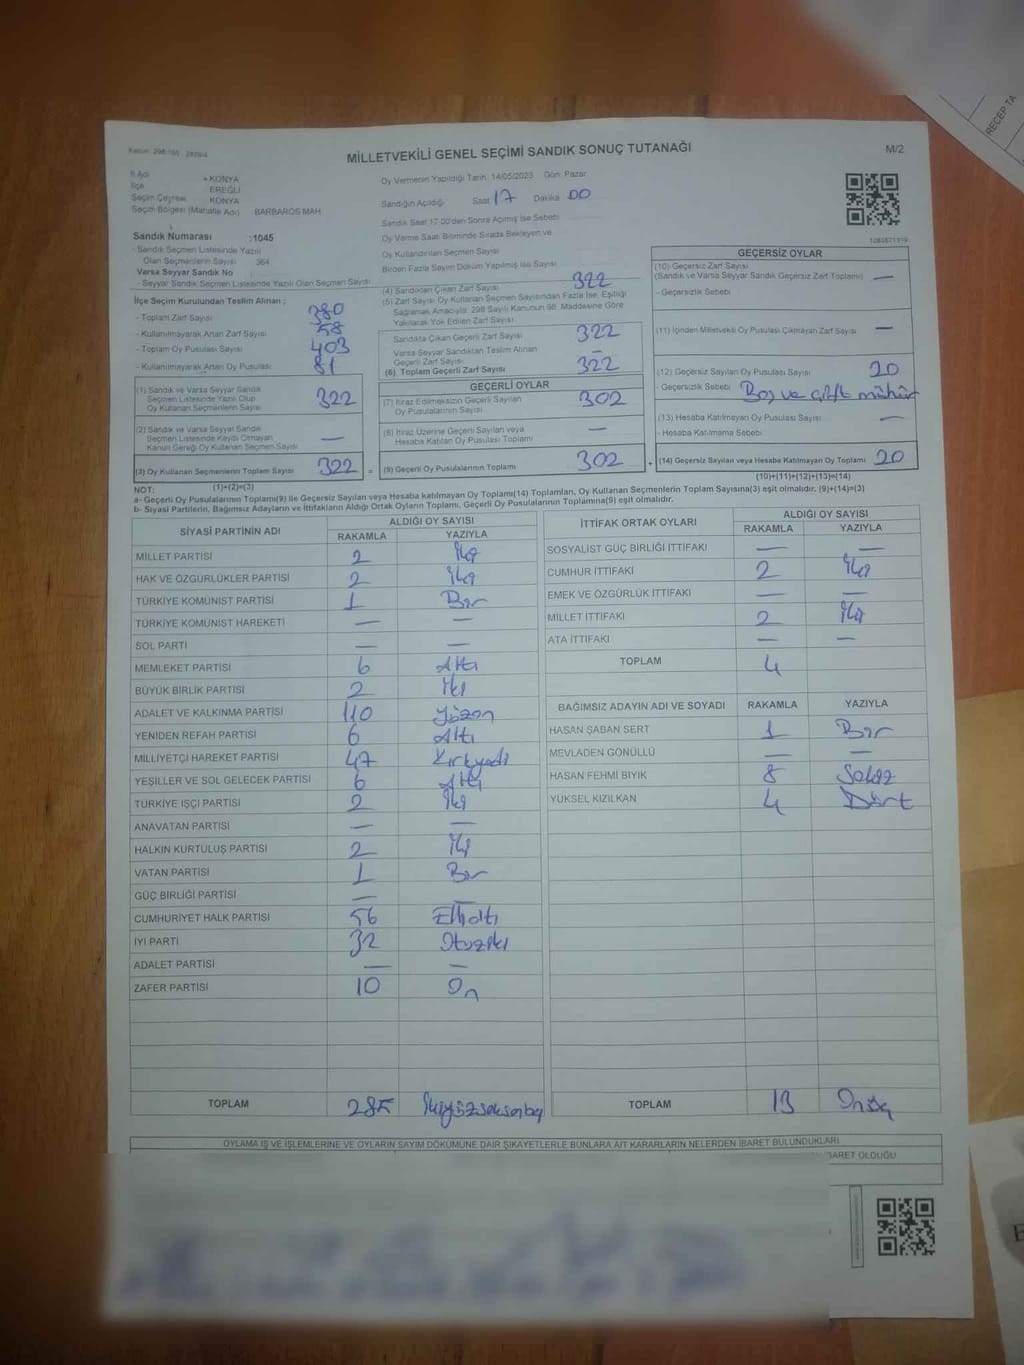 MİLLETVEKİLİ GENEL SEÇİMİ SANDIK SONUÇ TUTANAĞI
M/2
İl Adı : KONYA
İlçe : EREĞLİ
Seçim Çevresi : KONYA
Seçim Bölgesi (Mahalle Adı) BARBAROS MAH
Sandık Numarası :1045
- Sandık Seçmen Listesinde Yazılı
Olan Seçmenlerin Sayısı 364
Varsa Seyyar Sandık No
- Seyyar Sandık Seçmen Listesinde Yazılı Olan Seçmen Sayısı
İlçe Seçim Kurulundan Teslim Alınan ;
- Toplam Zarf Sayısı 380
- Kullanılmayarak Artan Zarf Sayısı 58
- Toplam Oy Pusulası Sayısı 403
- Kullanılmayarak Artan Oy Pusulası 81
(1) Sandık ve Varsa Seyyar Sandık
Seçmen Listesinde Yazılı Olup
Oy Kullanan Seçmenlerin Sayısı 322
(2) Sandık ve Varsa Seyyar Sandık
Seçmen Listesinde Kaydı Olmayan
Kanun Gereği Oy Kullanan Seçmen Sayısı —
(3) Oy Kullanan Seçmenlerin Toplam Sayısı 322 =
(1)+(2)=(3)
Oy Vermenin Yapıldığı Tarih: 14/05/2023 Gün: Pazar
Sandığın Açıldığı Saat 17 Dakika 00
Sandık Saat 17:00'den Sonra Açılmış İse Sebebi
Oy Verme Saati Bitiminde Sırada Bekleyen ve
Oy Kullandırılan Seçmen Sayısı
Birden Fazla Sayım Döküm Yapılmış İse Sayısı
(4) Sandıktan Çıkan Zarf Sayısı 322
(5) Zarf Sayısı Oy Kullanan Seçmen Sayısından Fazla İse, Eşitliği
Sağlamak Amacıyla, 298 Sayılı Kanunun 98. Maddesine Göre
Yakılarak Yok Edilen Zarf Sayısı
Sandıkta Çıkan Geçerli Zarf Sayısı 322
Varsa Seyyar Sandıktan Teslim Alınan
Geçerli Zarf Sayısı —
(6) Toplam Geçerli Zarf Sayısı 322
GEÇERLİ OYLAR
(7) İtiraz Edilmeksizin Geçerli Sayılan
Oy Pusulalarının Sayısı 302
(8) İtiraz Üzerine Geçerli Sayılan veya
Hesaba Katılan Oy Pusulası Toplamı —
(9) Geçerli Oy Pusulalarının Toplamı 302 +
1083871319
GEÇERSİZ OYLAR
(10) Geçersiz Zarf Sayısı
(Sandık ve Varsa Seyyar Sandık Geçersiz Zarf Toplamı) —
- Geçersizlik Sebebi
(11) İçinden Milletvekili Oy Pusulası Çıkmayan Zarf Sayısı —
(12) Geçersiz Sayılan Oy Pusulası Sayısı 20
- Geçersizlik Sebebi Boş ve çift mühür
(13) Hesaba Katılmayan Oy Pusulası Sayısı —
- Hesaba Katılmama Sebebi
(14) Geçersiz Sayılan veya Hesaba Katılmayan Oy Toplamı 20
(10)+(11)+(12)+(13)=(14)
NOT:
a- Geçerli Oy Pusulaları Toplamı(9) ile Geçersiz Sayılan veya Hesaba katılmayan Oy Toplamı(14) Toplamları, Oy Kullanan Seçmenlerin Toplam Sayısına(3) eşit olmalıdır. (9)+(14)=(3)
b- Siyasi Partilerin, Bağımsız Adayların ve İttifakların Aldığı Ortak Oyların Toplamı, Geçerli Oy Pusulalarının Toplamına(9) eşit olmalıdır.
SİYASİ PARTİNİN ADI ALDIĞI OY SAYISI
RAKAMLA YAZIYLA
MİLLET PARTİSİ 2 İki
HAK VE ÖZGÜRLÜKLER PARTİSİ 2 İki
TÜRKİYE KOMÜNİST PARTİSİ 1 Bir
TÜRKİYE KOMÜNİST HAREKETİ — —
SOL PARTİ — —
MEMLEKET PARTİSİ 6 Altı
BÜYÜK BİRLİK PARTİSİ 2 İki
ADALET VE KALKINMA PARTİSİ 110 Yüzon
YENİDEN REFAH PARTİSİ 6 Altı
MİLLİYETÇİ HAREKET PARTİSİ 47 Kırkyedi
YEŞİLLER VE SOL GELECEK PARTİSİ 6 Altı
TÜRKİYE İŞÇİ PARTİSİ 2 İki
ANAVATAN PARTİSİ — —
HALKIN KURTULUŞ PARTİSİ 2 İki
VATAN PARTİSİ 1 Bir
GÜÇ BİRLİĞİ PARTİSİ — —
CUMHURİYET HALK PARTİSİ 56 Ellialtı
İYİ PARTİ 32 Otuziki
ADALET PARTİSİ — —
ZAFER PARTİSİ 10 On
TOPLAM 285 İkiyüzseksenbeş
İTTİFAK ORTAK OYLARI ALDIĞI OY SAYISI
RAKAMLA YAZIYLA
SOSYALİST GÜÇ BİRLİĞİ İTTİFAKI — —
CUMHUR İTTİFAKI 2 İki
EMEK VE ÖZGÜRLÜK İTTİFAKI — —
MİLLET İTTİFAKI 2 İki
ATA İTTİFAKI — —
TOPLAM 4
BAĞIMSIZ ADAYIN ADI VE SOYADI RAKAMLA YAZIYLA
HASAN ŞABAN SERT 1 Bir
MEVLADEN GÖNÜLLÜ — —
HASAN FEHMİ BIYIK 8 Sekiz
YÜKSEL KIZILKAN 4 Dört
TOPLAM 13 Onüç
OYLAMA İŞ VE İŞLEMLERİNE VE OYLARIN SAYIM DÖKÜMÜNE DAİR ŞİKAYETLERLE BUNLARA AİT KARARLARIN NELERDEN İBARET BULUNDUKLARI
BARET OLDUĞU
RECEP TA